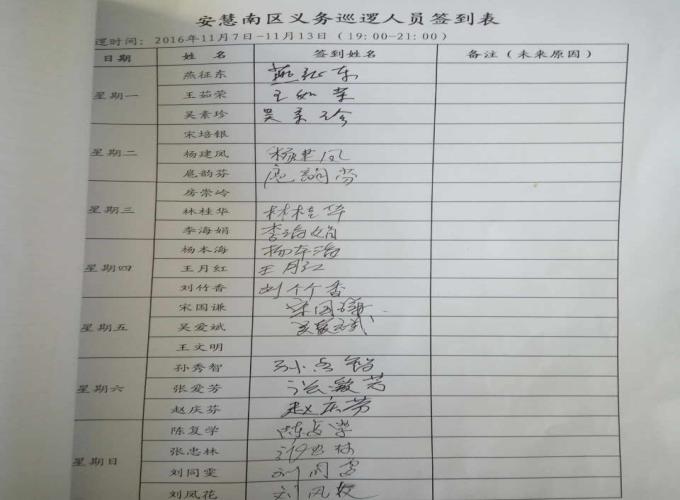 安慧南区义务巡逻人员签到表
逻时间：2016年11月7日-11月13日（19:00-21:00）
日期 姓名 签到姓名 备注（未来原因）
星期一 燕征东 燕征东
王茹荣 王如荣
吴素珍 吴素珍
星期二 宋培银
杨建凤 杨建凤
扈韵芬 扈韵芬
星期三 房崇岭
林桂华 林桂华
李海娟 李海娟
星期四 杨本海 杨本海
王月红 王月红
刘竹香 刘竹香
星期五 宋国谦 宋国谦
吴爱斌 吴爱斌
王文明
星期六 孙秀智 孙秀智
张爱芳 张爱芳
赵庆芬 赵庆芬
星期日 陈复学 陈复学
张忠林 张忠林
刘同雯 刘同雯
刘凤花